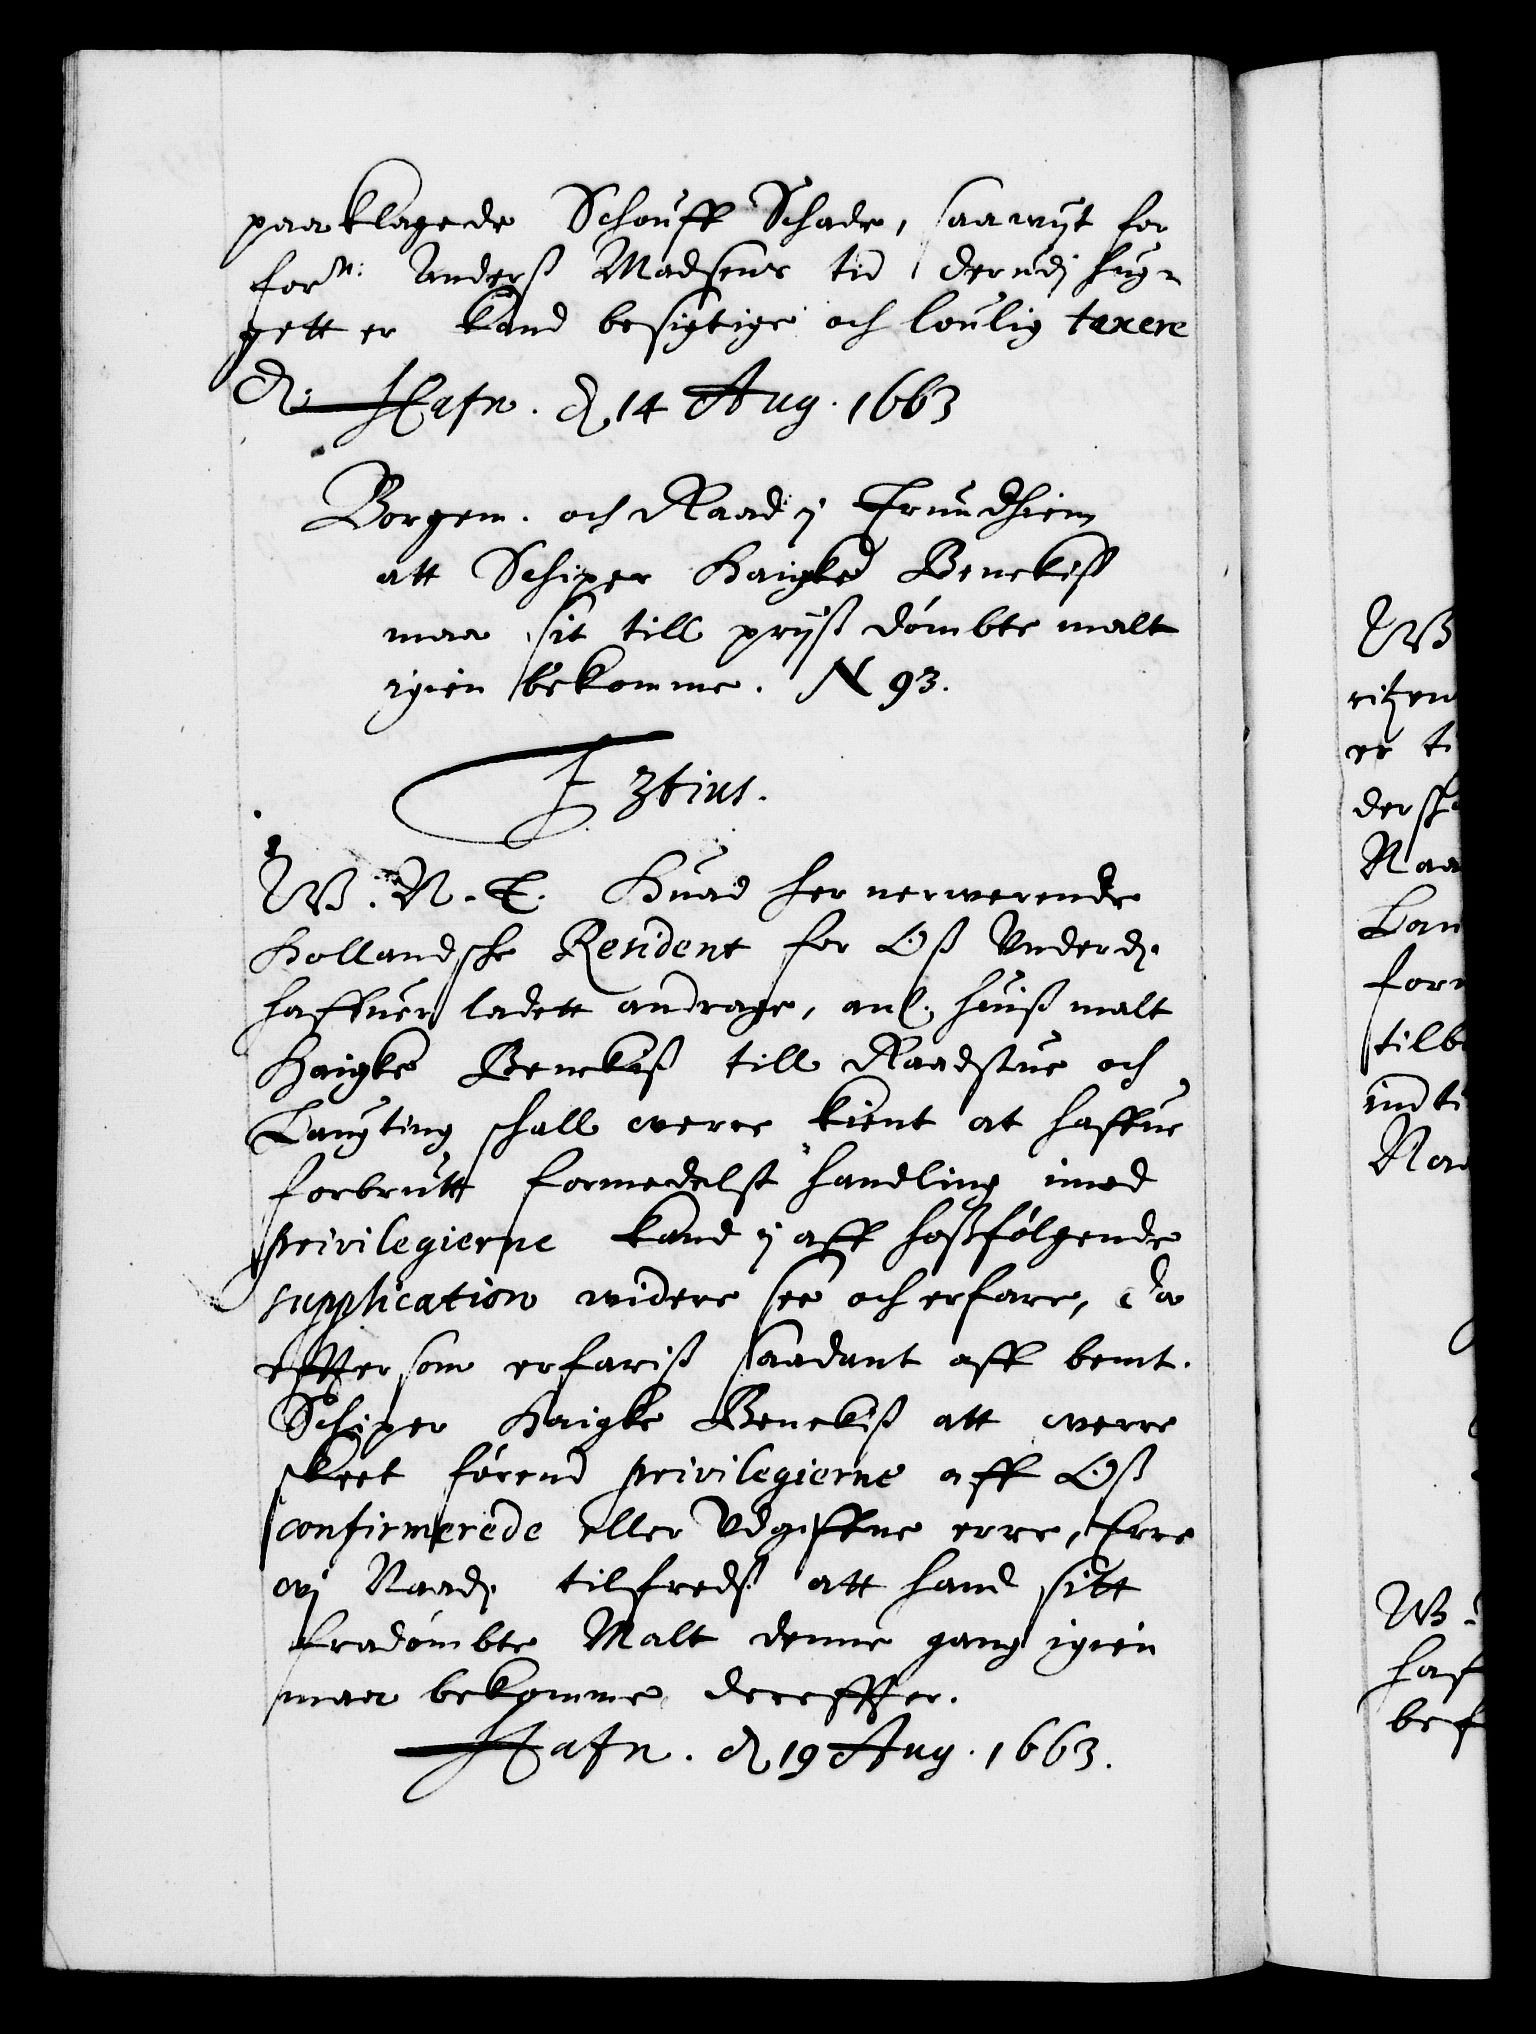 paaklagede Schouff Schade, saawijt for
forn: Anderss Madsens tid derudj hug-
gett er kand besigtige och loulig taxere
D. Hafn. d 14 Aug. 1663
Borgem. och Raad i Trundhiem
att Schiper Haigke Benckiss
maa sit till prijss dømbte malt
igien bekomme. N 93.
F 3tius.
W. N. T. Huad her nerwerende
Hollandsche Resident for Oss Underd.
haffuer ladett andrage, anl. huiss malt
Haigke Benckiss till Raadstue och
Laugting schall were kient at haffue
forbrutt formedelst handling imod
privilegierne kand i aff hossfølgende
supplication widere see och erfare, da
efftersom erfariss saadant aff bemt.
Schiper Haigke Benckiss att werre
skeet førend privilegierne aff Oss
confirmerede eller Udgiffne erre, Erre
wj Naad. tilfredss att hand sitt
fradømbte Malt denne gang igien
maa bekomme derefffter.
Hafn. d 19 Aug. 1663.